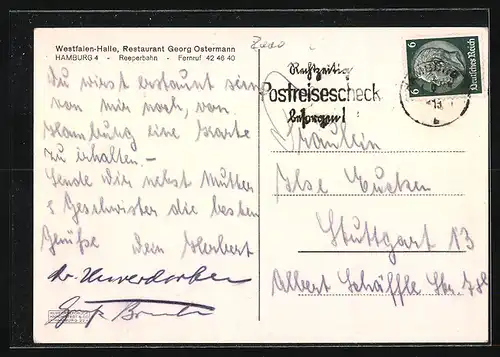 Westfalen-Halle, Restaurant Georg Ostermann
HAMBURG 4 - Reeperbahn - Fernruf 42 46 40
Du wirst erstaunt sein
von mir noch, von
Hamburg eine Karte
zu erhalten.-
Sende Dir nebst Mutter
& Geschwister die besten
Grüße Dein Herbert
Rechtzeitig
Postreisescheck
besorgen!
6 Deutsches Reich 6
Fräulein
Ilse
Stuttgart 13
Albert Schäffle Str.